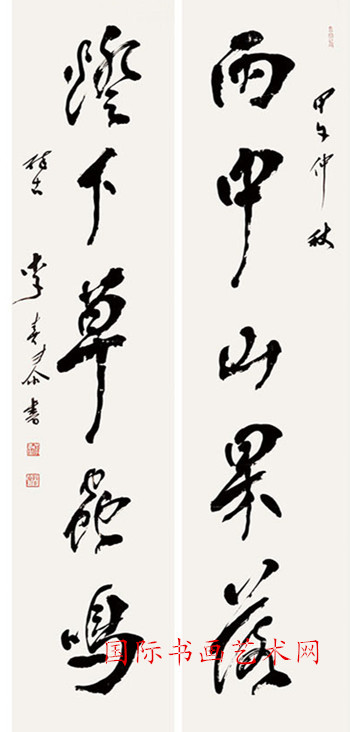 甲午仲秋
雨中山果落
燈下草蟲鳴
李春
書
国际书画艺术网